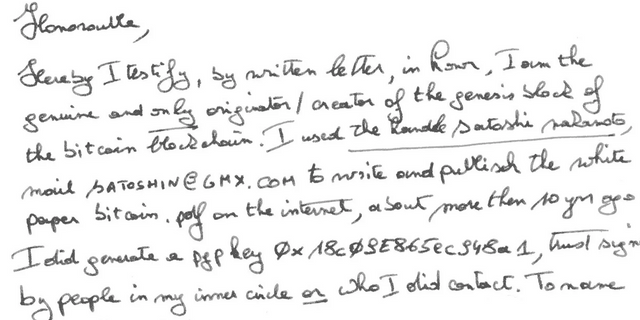 Honorouble,
Hereby I testify, by written letter, in honor, I am the
genuine and only originator/creator of the genesis block of
the bitcoin blockchain. I used the handle satoshi nakamoto,
mail SATOSHIN@GMX.COM to write and publisch the white
paper bitcoin.pdf on the internet, about more then 10 yrs ago
I did generate a pgp key 0x18C09E865EC948A1, trust sign
by people in my inner circle or who I did contact. To name